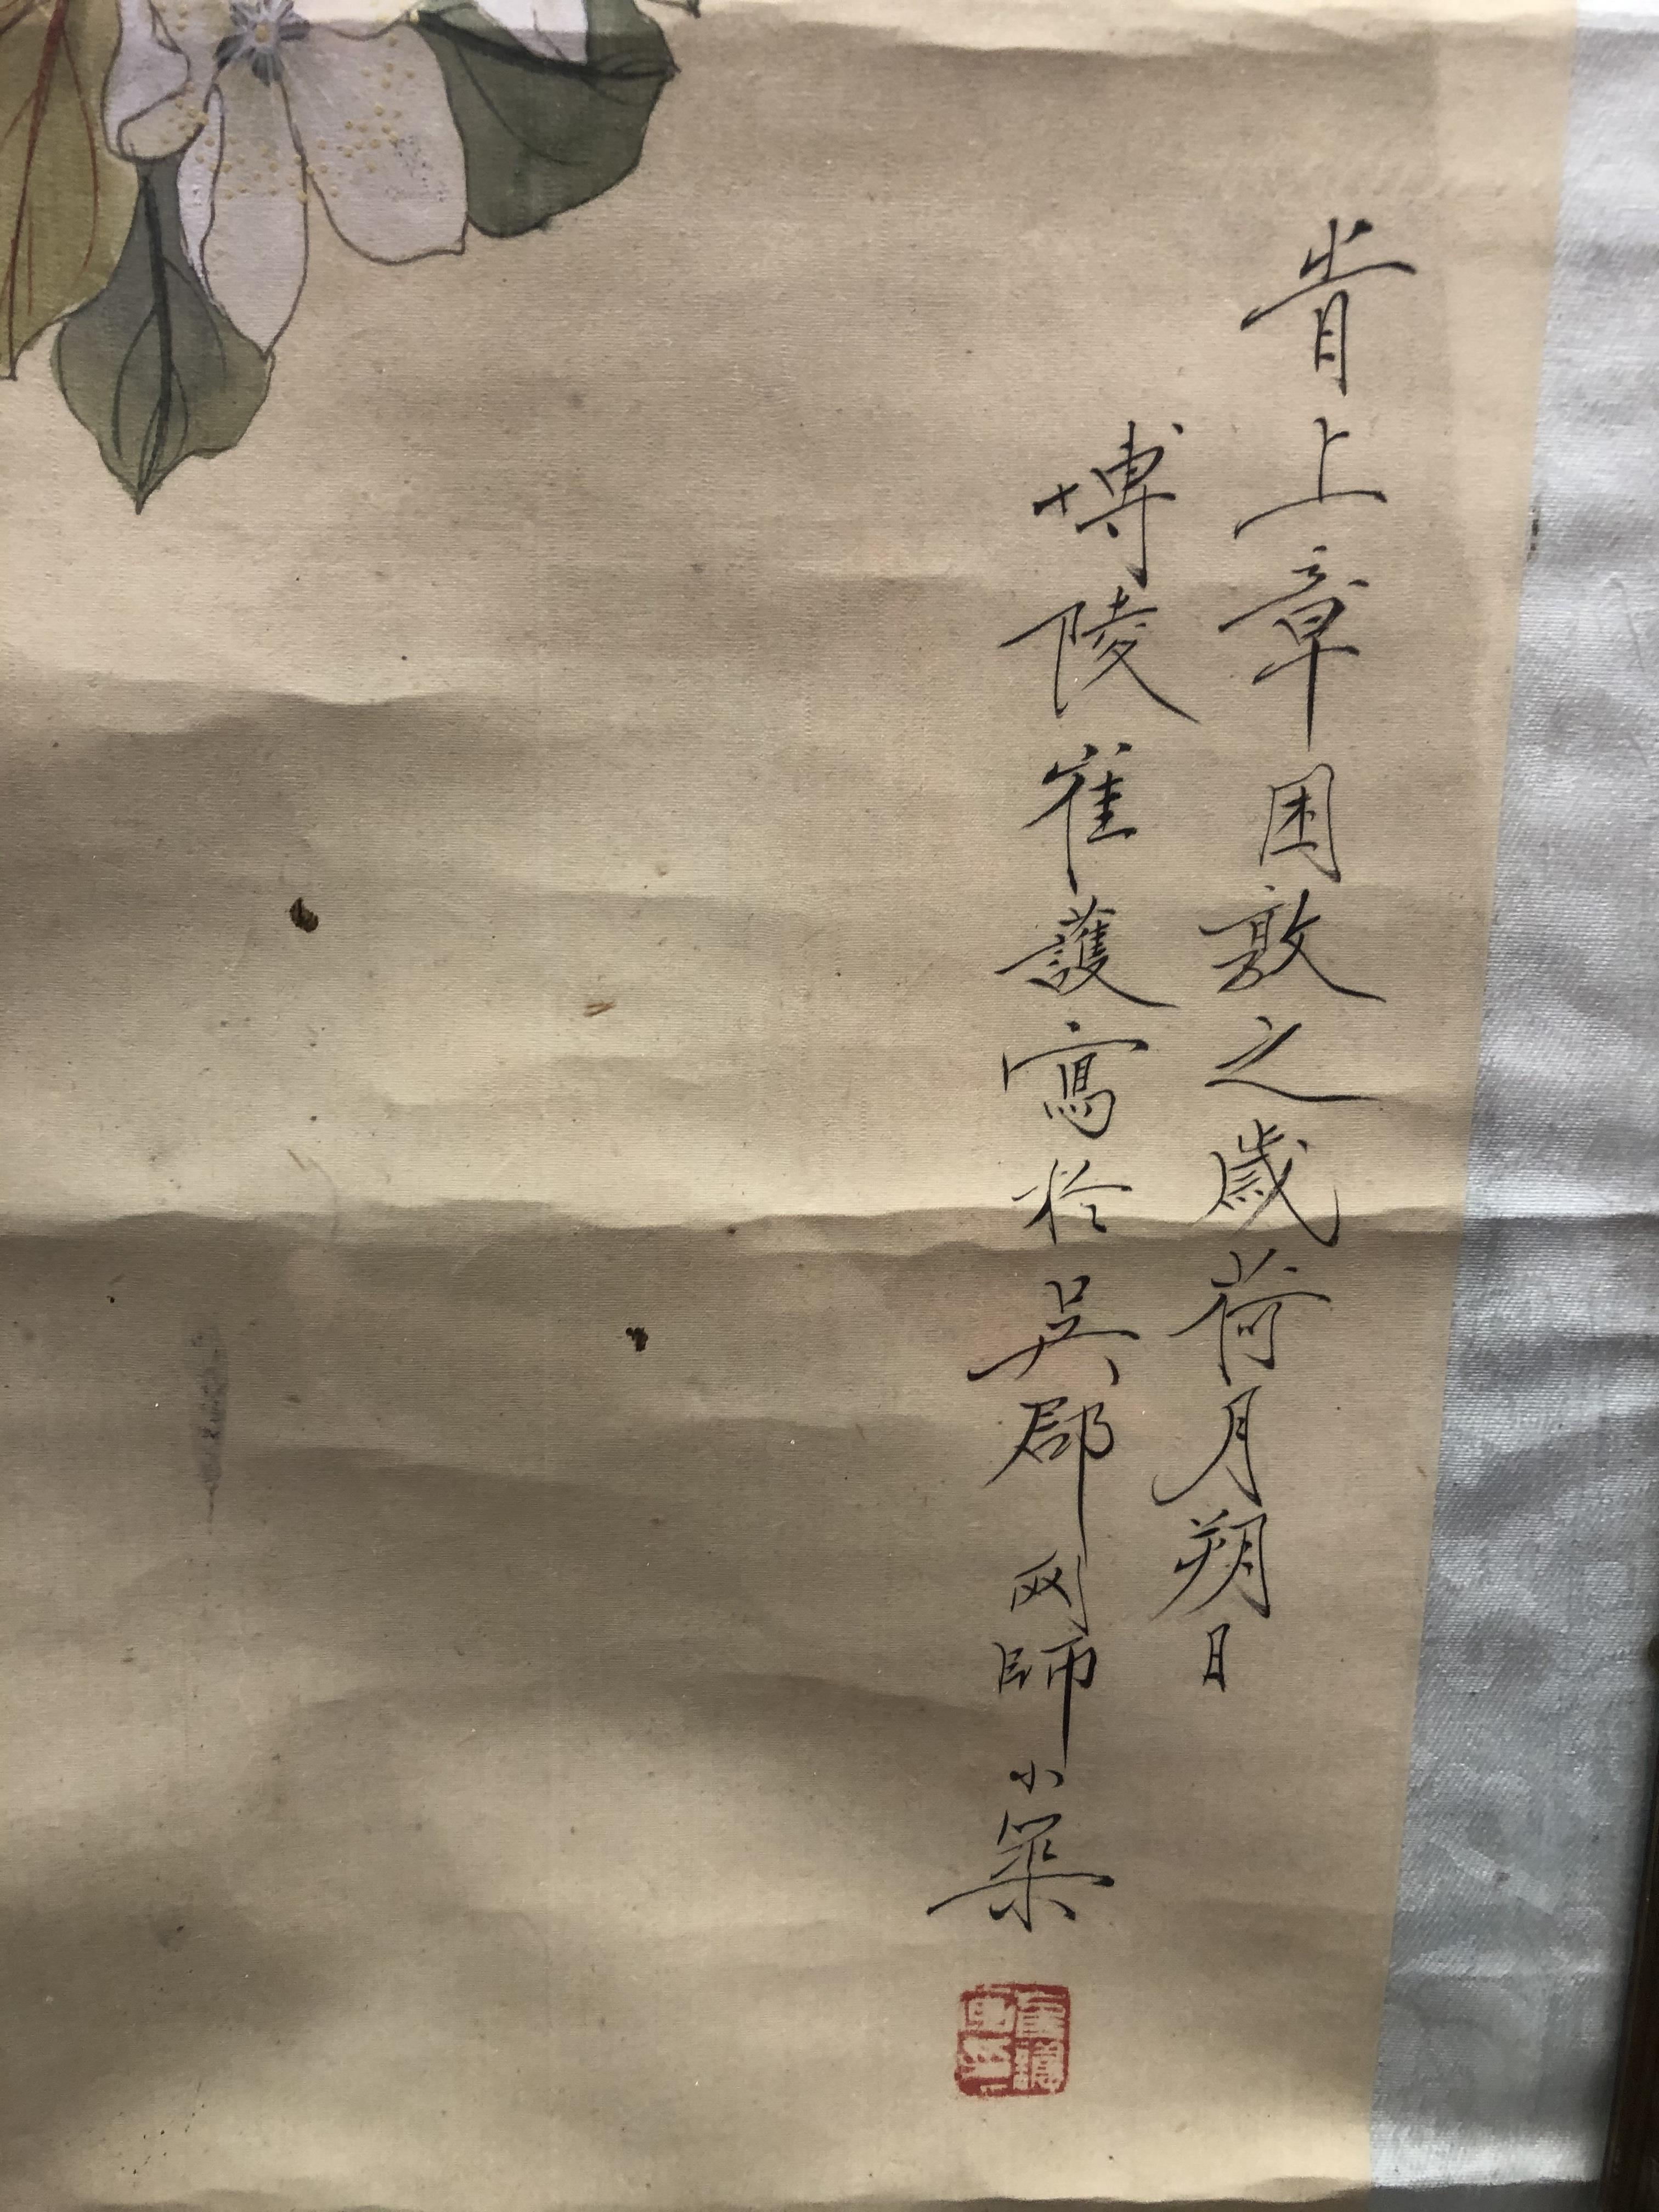 旹上章困敦之歲荷月朔日
博陵崔護寫於吳郡网師小築
崔護